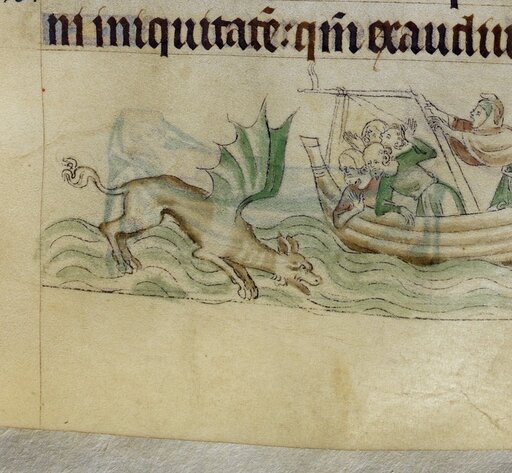 ni iniquitatē: qm̄ exaudiu